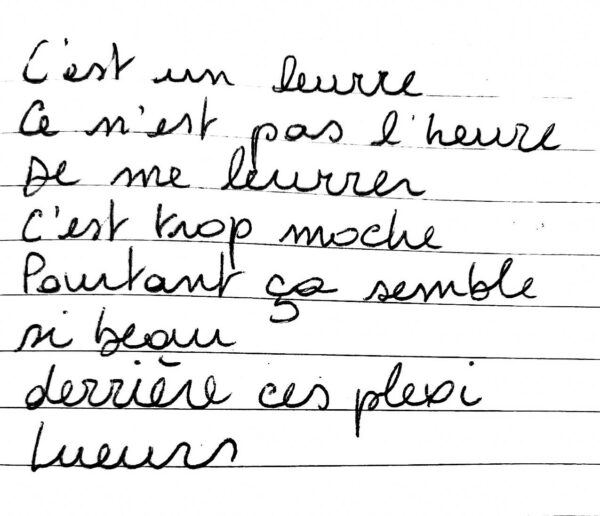 C'est un leurre
Ce n'est pas l'heure
De me leurrer
C'est trop moche
Pourtant ça semble
si beau
derrière ces plexi
Lueurs